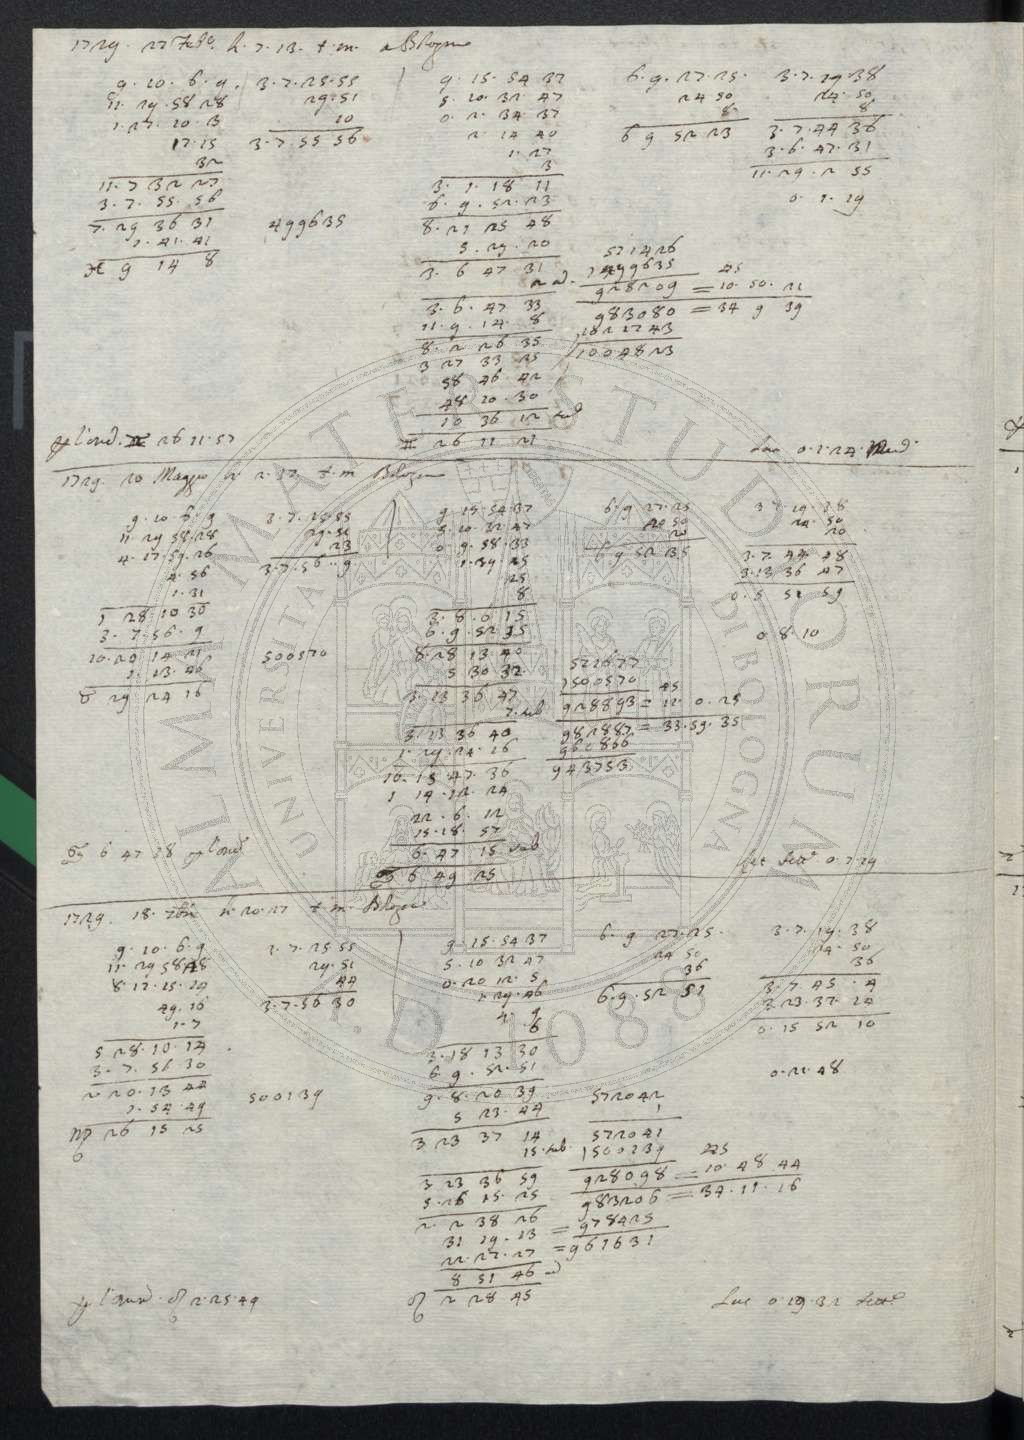 1729. 27 Feb.o h. 7. 13. t. m. a Bologna
9. 10. 6. 9.
11. 29. 58 28
1. 27. 20. 3
17. 15
32
11. 7 32 27
3. 7. 55. 56
7. 29 36 31
1. 41. 41
9 14 8
3. 7. 25. 55
29. 51
10
3. 7. 55 56
499635
9. 15. 54 37
5. 10. 32. 47
0. 2. 34 37
2. 14 40
1. 27
3
3. 1. 18 11
6. 9. 52. 23
8. 21 25 48
5. 29. 20
3. 6 47 31
2 ad.
3. 6. 47 33
11. 9. 14. 8
8. 2 26 35
3 27 33 25
58 46. 42
48 20. 30
10 36 12 sub
26 11 21
6. 9. 27. 25.
24 50
8
6 9 52 23
3. 7. 29. 38
24. 50
8
3. 7. 44 36
3. 6. 47. 31
11. 29. 2 55
0. 1. 29
571426
1499635
928209 = 10. 50. 21
45
983080 = 34 9 39
1021743
1004823
26 11. 57
Luc 0. 1. 24.
1729. 20 Maggio h. 2. 37. t. m Bologna
9. 10. 6. 9
11. 29 58. 28
4. 17. 59. 26
4. 56
1. 31
1 28 10 30
3. 7. 56. 9
10. 20 14 21
1. 13. 46
29 24 16
3. 7. 25. 55
29. 51
23
3. 7. 56. 9
500570
9. 15. 54 37
5. 10. 32. 47
0. 9. 58. 33
1. 39. 25
25
8
3. 8. 6 15
6. 9. 52 35
8. 28 13. 40
5 30 32
3. 13 36 47
7. sub
3. 13 36 40
1. 29. 24. 16
10. 15 47. 36
1 14. 12. 24
22. 6. 12
15. 18. 57
6. 47 15 sub
6 49 25
6. 9 27. 25
24 50
20
6. 9 52 35
3 7. 29. 38
24. 50
20
3. 7. 44. 48
3. 13 36 47
0. 5 51 59
0 8. 10
1500570
928893 = 11. 0. 25
45
982887 = 33. 59. 35
960866
943753
6 47 28
Lat Sett.e 0. 7 29
1729. 18. 7bre h. 20. 27 t. m. Bologna
9. 10. 6. 9
11. 29 58 28
49. 16
1. 7
5 28. 10. 14
3. 7. 56 30
2 20. 13 44
1. 54. 49
26 15 25
3. 7. 25 55
29. 51
44
3. 7. 56 30
500139
9. 15. 54 37
5. 10 32 47
0. 20 12. 5
1. 29. 46
4. 9
6
3. 18 13 30
6. 9. 52. 51
9. 8. 20 39
5 23. 44
3 23 37 14
15. sub.
3 23 36 59
5. 26 15. 25
2. 2 38 26
31 29. 13 = 978425
22. 27. 27 = 961631
8 51 46
2 28 45
6. 9 27. 25.
24 50
36
6. 9. 52 51
3. 7. 29. 38
24. 50
36
3. 7. 45. 4
3 23. 37. 14
0. 15 52 10
0. 21. 48
572042
1
572041
1500139
928098 = 10. 48 44
45
983206 = 34. 11. 16
2. 25. 49
Luc 0. 19. 32 Sett.e
ALMA MATER STUDIORUM
UNIVERSITÀ DI BOLOGNA
A.D. 1088